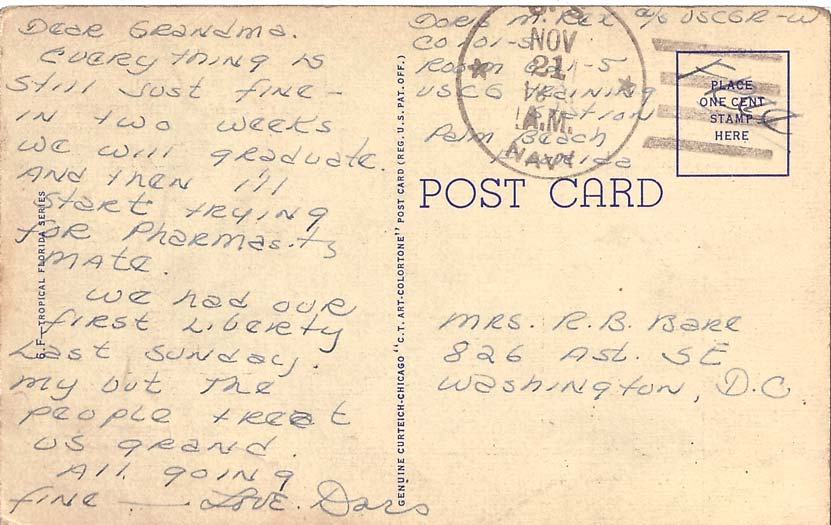 Dear Grandma.
Everything is
still just fine -
in two weeks
we will graduate.
And then I'll
start trying
for Pharmasits
mate.
We had our
first Liberty
Last Sunday.
My but the
people treat
us grand.
All going
fine — Love. Doris
6.F—TROPICAL FLORIDA SERIES
GENUINE CURTEICH-CHICAGO "C.T. ART-COLORTONE" POST CARD (REG. U.S. PAT. OFF.)
Doris M. Rex A/S USCGR-W
Co 101-S
Room
USCG Training
Station
Palm Beach
Florida
U.S.
NOV
21
A.M.
NAVY
PLACE
ONE CENT
STAMP
HERE
Free
POST CARD
Mrs. R.B. Bare
826 A st. SE
Washington, D.C